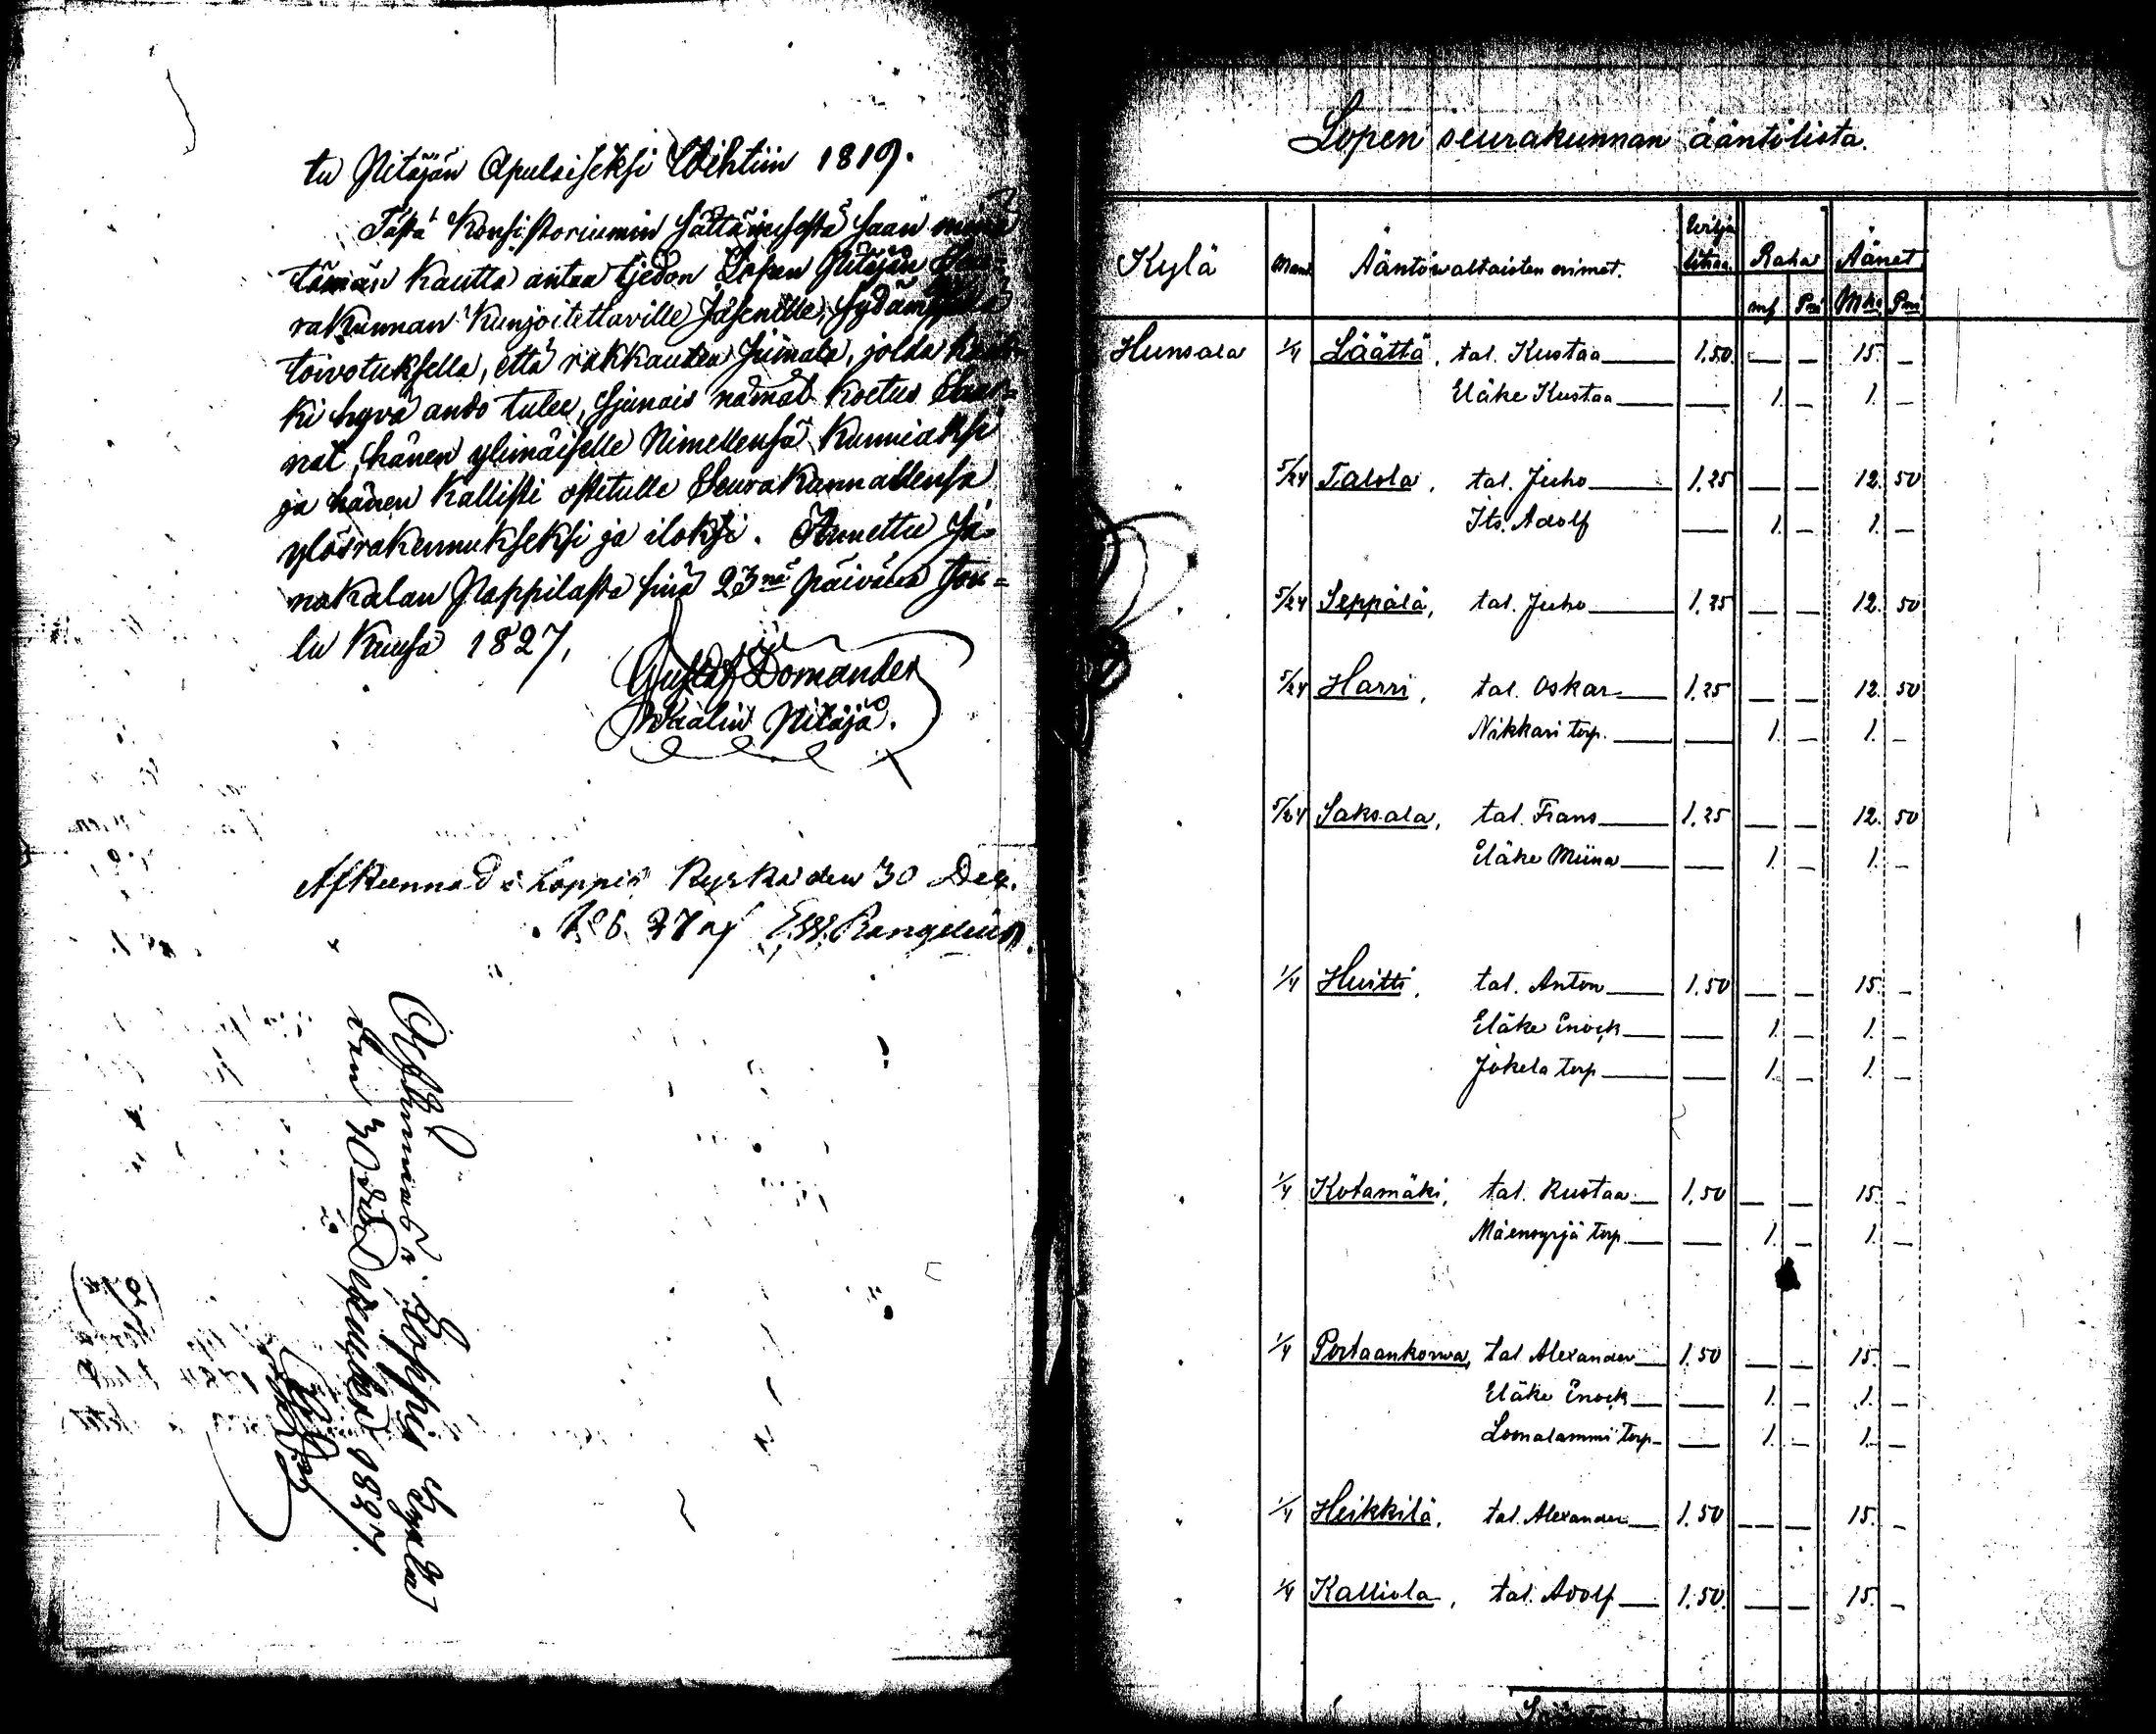 tu Pitäjän Apulaiseksi Wihtiin 1819.
Tästä Konsistoriumin Sättämisestä saan minä
tämän kautta antaa tjedon Lopen Pitäjän Seu-
rakunnan Kunjoitettaville Jäsenille, sydämmen
toivotuksella, että rakkauden Jumala, jolda kaik-
ki hyvä ando tulee, sjunais nämät koetus Saar-
nat, hänen ylimäiselle Nimellensä kunniaksi
ja hänen kallisti ostetulle Seurakunnallensa
ylösrakennukseksi ja iloksi. Annettu Ja-
nakalan Pappilasta sinä 23nä päivänä Jou-
lu Kuusa 1827,
Gustaf Domander
Waalin Pitäjä.
Afkunnad i Loppis Kyrka den 30 Dec.
1827 af E.W. Rangelius.
Afkunnad i Loppis Kyrka
den 30de December 1827.
Lopen seurakunnan ääntölista.
Kylä Mant. Ääntöwaltaisten nimet. Wilja litraa. Raha Äänet
mf Pni Mka Pni
Hunsala 1/4 Läättä, tal. Kustaa — 1,50 — — 15. —
Eläke Kustaa — — 1. — 1. —
" 5/24 Talola, tal. Juho — 1,25 — — 12. 50
Its. Adolf — 1. — 1. —
" 5/24 Seppälä, tal. Juho — 1,25 — — 12. 50
" 5/24 Harri, tal. Oskar — 1,25 — — 12. 50
Nikkari torp. — — 1. — 1. —
" 5/24 Saksala, tal. Frans — 1,25 — — 12. 50
Eläke Miina — — 1. — 1. —
" 1/4 Huitti, tal. Anton — 1,50 — — 15. —
Eläke Enock — — 1. — 1. —
Jokela torp — — 1. — 1. —
" 1/4 Kotamäki, tal. Kustaa — 1,50 — — 15. —
Mäensyrjä torp. — — 1. — 1. —
" 1/4 Portaankorwa, tal Alexander — 1.50 — — 15. —
Eläke Enock — — 1. — 1. —
Luonalammi Torp — — 1. — 1. —
" 1/4 Heikkilä, tal. Alexander — 1.50 — — 15. —
" 1/4 Kalliola, tal. Adolf — 1.50. — — 15. —